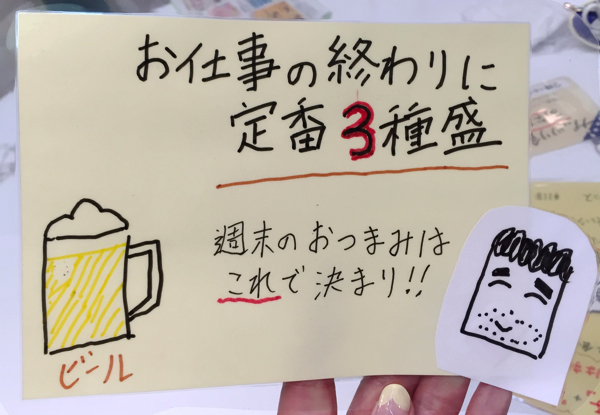 お仕事の終わりに
定番3種盛
週末のおつまみは
これで決まり!!
ビール